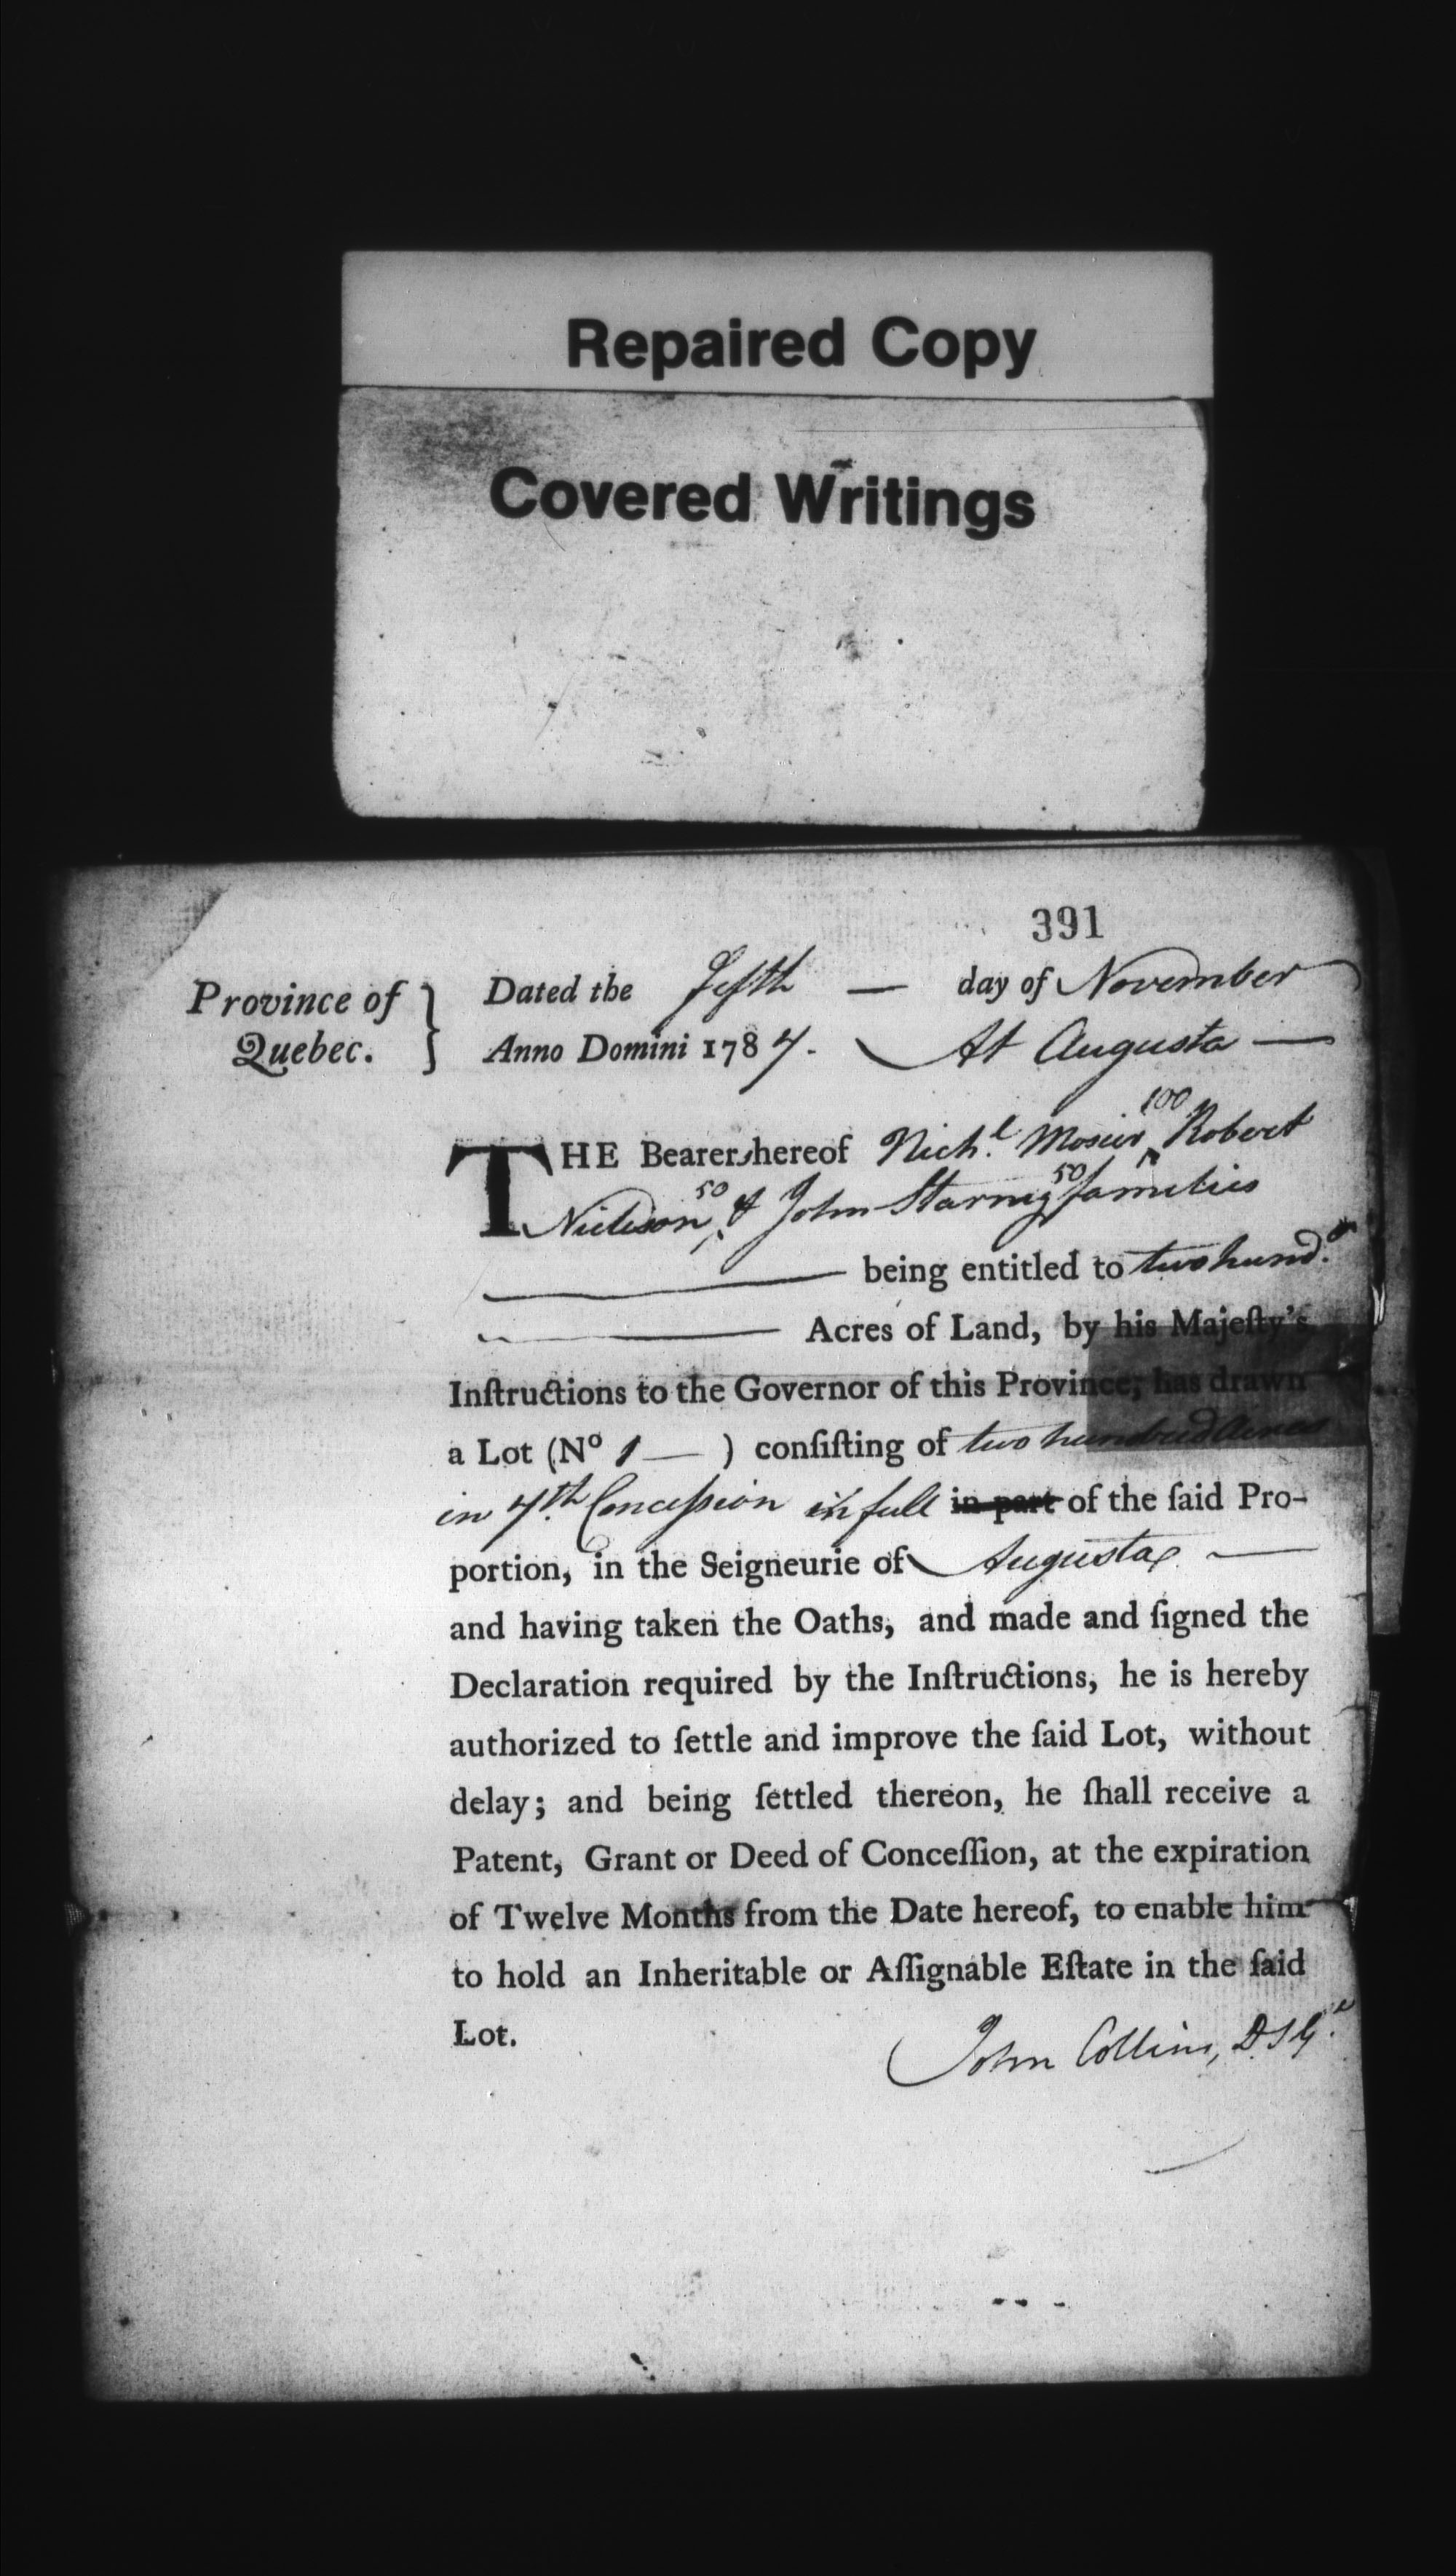 Repaired Copy
Covered Writings
391
Province of Quebec. } Dated the fifth — day of November
Anno Domini 1787. — At Augusta —
THE Bearers hereof Nich.l Mosier 100, Robert
50 & John 50 families
being entitled to two hund.d
Acres of Land, by his Majeſty's
Inſtructions to the Governor of this Province, has drawn
a Lot (No 1 — ) conſiſting of two hundred Acres
in 7th Conceſsion in full in part of the ſaid Pro-
portion, in the Seigneurie of Augusta —
and having taken the Oaths, and made and ſigned the
Declaration required by the Inſtructions, he is hereby
authorized to ſettle and improve the ſaid Lot, without
delay; and being ſettled thereon, he ſhall receive a
Patent, Grant or Deed of Conceſſion, at the expiration
of Twelve Months from the Date hereof, to enable him
to hold an Inheritable or Aſſignable Eſtate in the ſaid
Lot.
John Collins, D.S.G.l